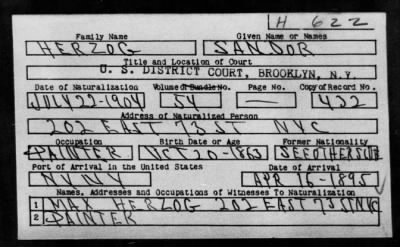 H 622
Family Name Given Name or Names
HERZOG SANDOR
Title and Location of Court
U. S. DISTRICT COURT, BROOKLYN, N.Y.
Date of Naturalization Volume or Bundle No. Page No. Copy of Record No.
JULY 22-1904 54 — 422
Address of Naturalized Person
202 EAST 73 ST NYC
Occupation Birth Date or Age Former Nationality
PAINTER OCT 20-1863 SEE OTHER SIDE
Port of Arrival in the United States Date of Arrival
NY NY APR 16-1895
Names, Addresses and Occupations of Witnesses To Naturalization
1 MAX HERZOG 202 EAST 73 ST NYC
2 PAINTER